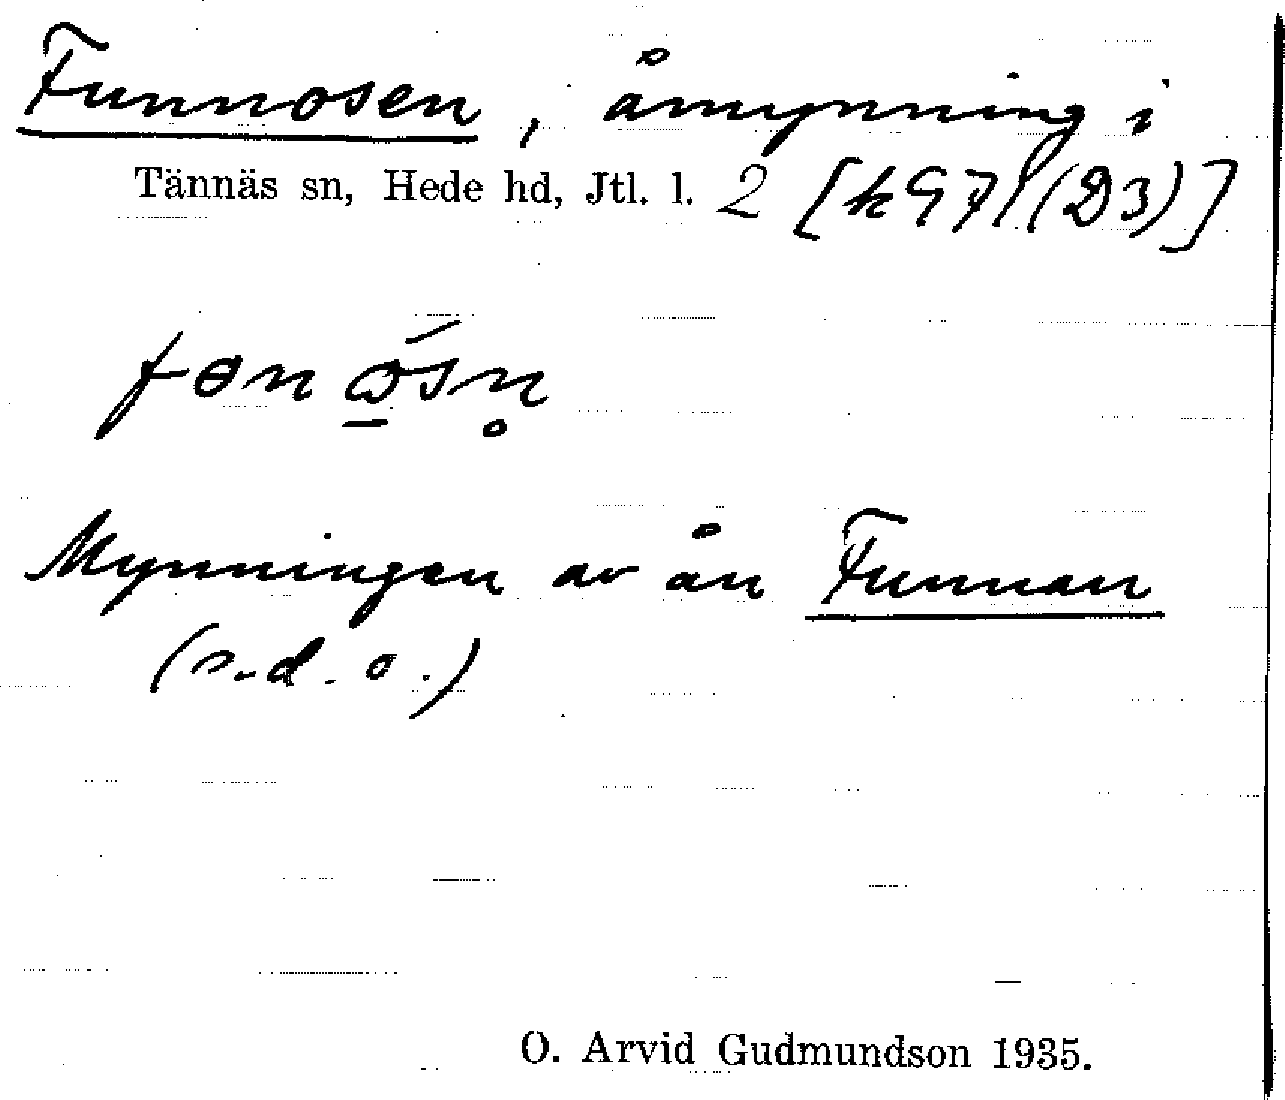 Funnosen, åmynning i
Tännäs sn, Hede hd, Jtl. l. 2 [k97 (D3)]
Mynningen av ån Funnan
(s.d.o.)
O. Arvid Gudmundson 1935.